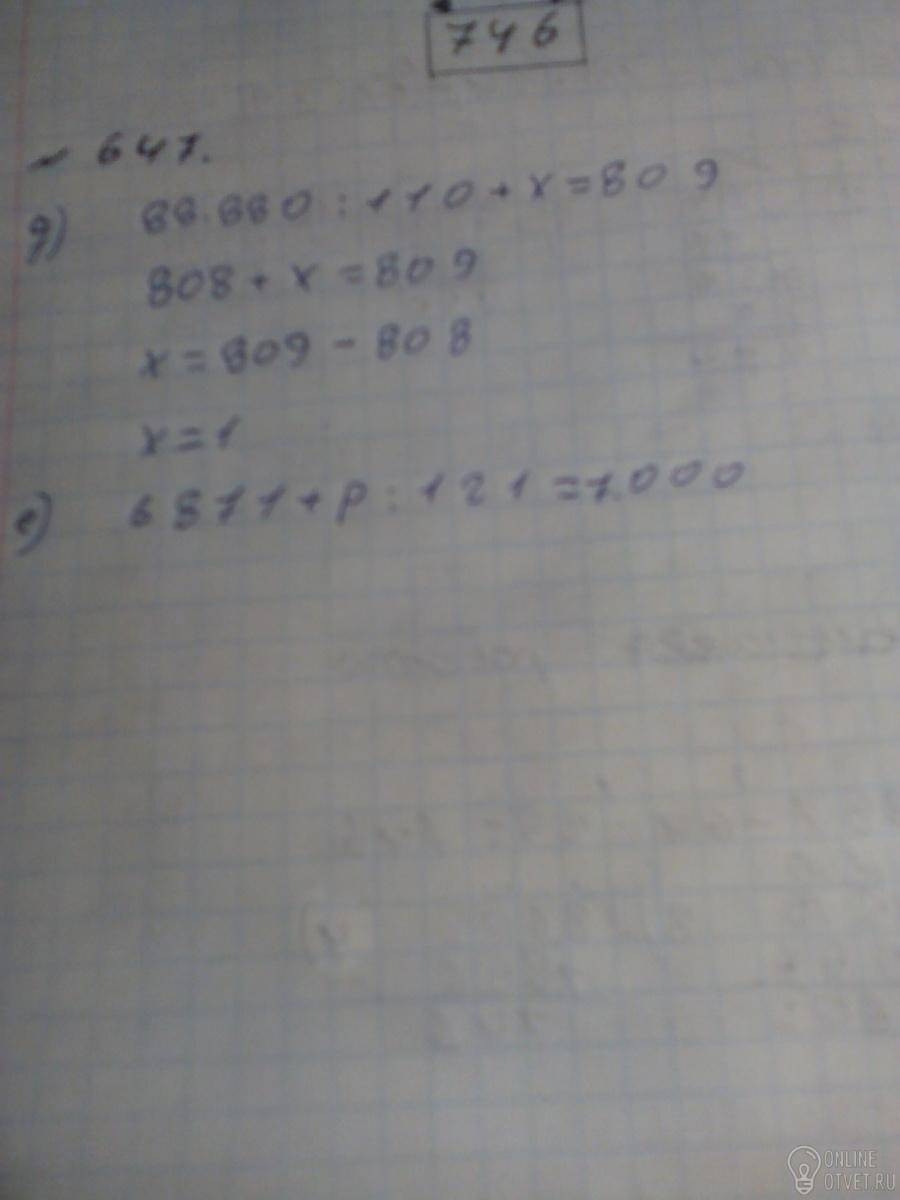 746
~ 647.
д) 88.880 : 110 + x = 809
808 + x = 809
x = 809 - 808
x = 1
е) 6871 + p : 121 = 7.000
ONLINE
OTVET.RU